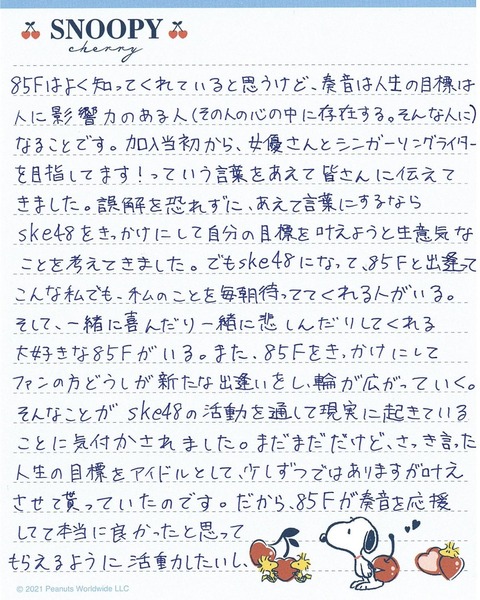 SNOOPY
cherry
85Fはよく知ってくれていると思うけど、奏音は人生の目標は
人に影響力のある人(その人の心の中に存在する。そんな人に)
なることです。加入当初から、女優さんとシンガーソングライター
を目指してます!っていう言葉をあえて皆さんに伝えて
きました。誤解を恐れずに、あえて言葉にするなら
ske48をきっかけにして自分の目標を叶えようと生意気な
ことを考えてきました。でもske48になって、85Fと出逢って
こんな私でも、私のことを毎朝待っててくれる人がいる。
そして、一緒に喜んだり一緒に悲しんだりしてくれる
大好きな85Fがいる。また、85Fをきっかけにして
ファンの方どうしが新たな出逢いをし、輪が広がっていく。
そんなことがske48の活動を通して現実に起きている
ことに気付かされました。まだまだだけど、さっき言った
人生の目標をアイドルとして、少しずつではありますが叶え
させて貰っていたのです。だから、85Fが奏音を応援
してて本当に良かったと思って
もらえるように活動したいし、
© 2021 Peanuts Worldwide LLC